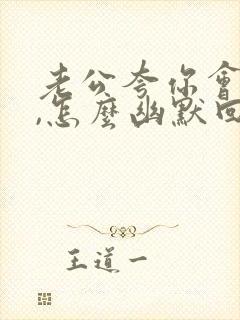 老公夸你會
,怎麼幽默回
王道一